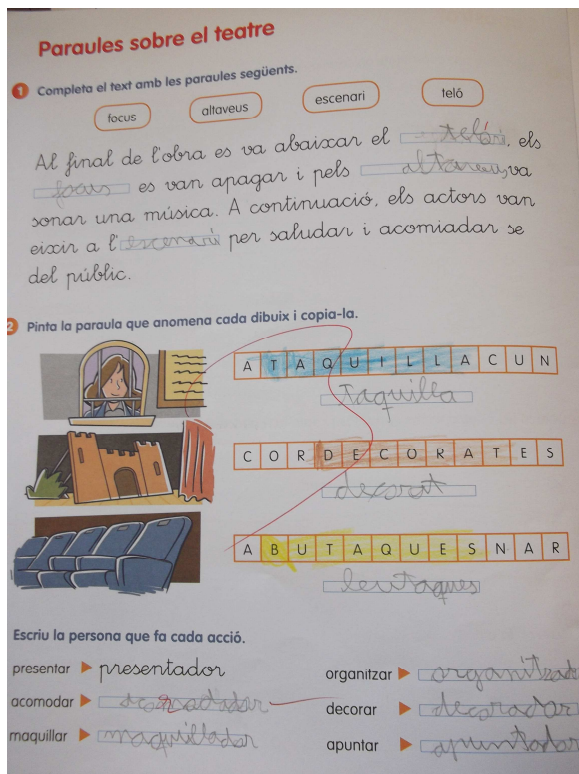 Paraules sobre el teatre
1 Completa el text amb les paraules següents.
focus altaveus escenari teló
Al final de l'obra es va abaixar el teló, els
focus es van apagar i pels altaveus, va
sonar una música. A continuació, els actors van
eixir a l'escenari per saludar i acomiadar se
del públic.
2 Pinta la paraula que anomena cada dibuix i copia-la.
A T A Q U I L L A C U N
taquilla
C O R D E C O R A T E S
decorat
A B U T A Q U E S N A R
Escriu la persona que fa cada acció.
presentar presentador organitzar organitzad
acomodar decorar decorador
maquillar maquillador apuntar apuntador